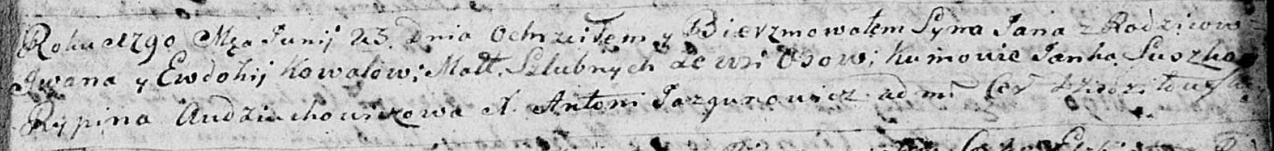 Roku 1790 Mca Junij 23. Dnia Ochrzciłem y Bierzmowałem Syna Jana z Rodzicow
Jwana y Ewdokij Kowalow: Małt. Szlubnych ze wsi Osow: Kumowie Janka Suszko
Rypina Audziuchowiczowa X. Antoni Jazgunowicz ad m: